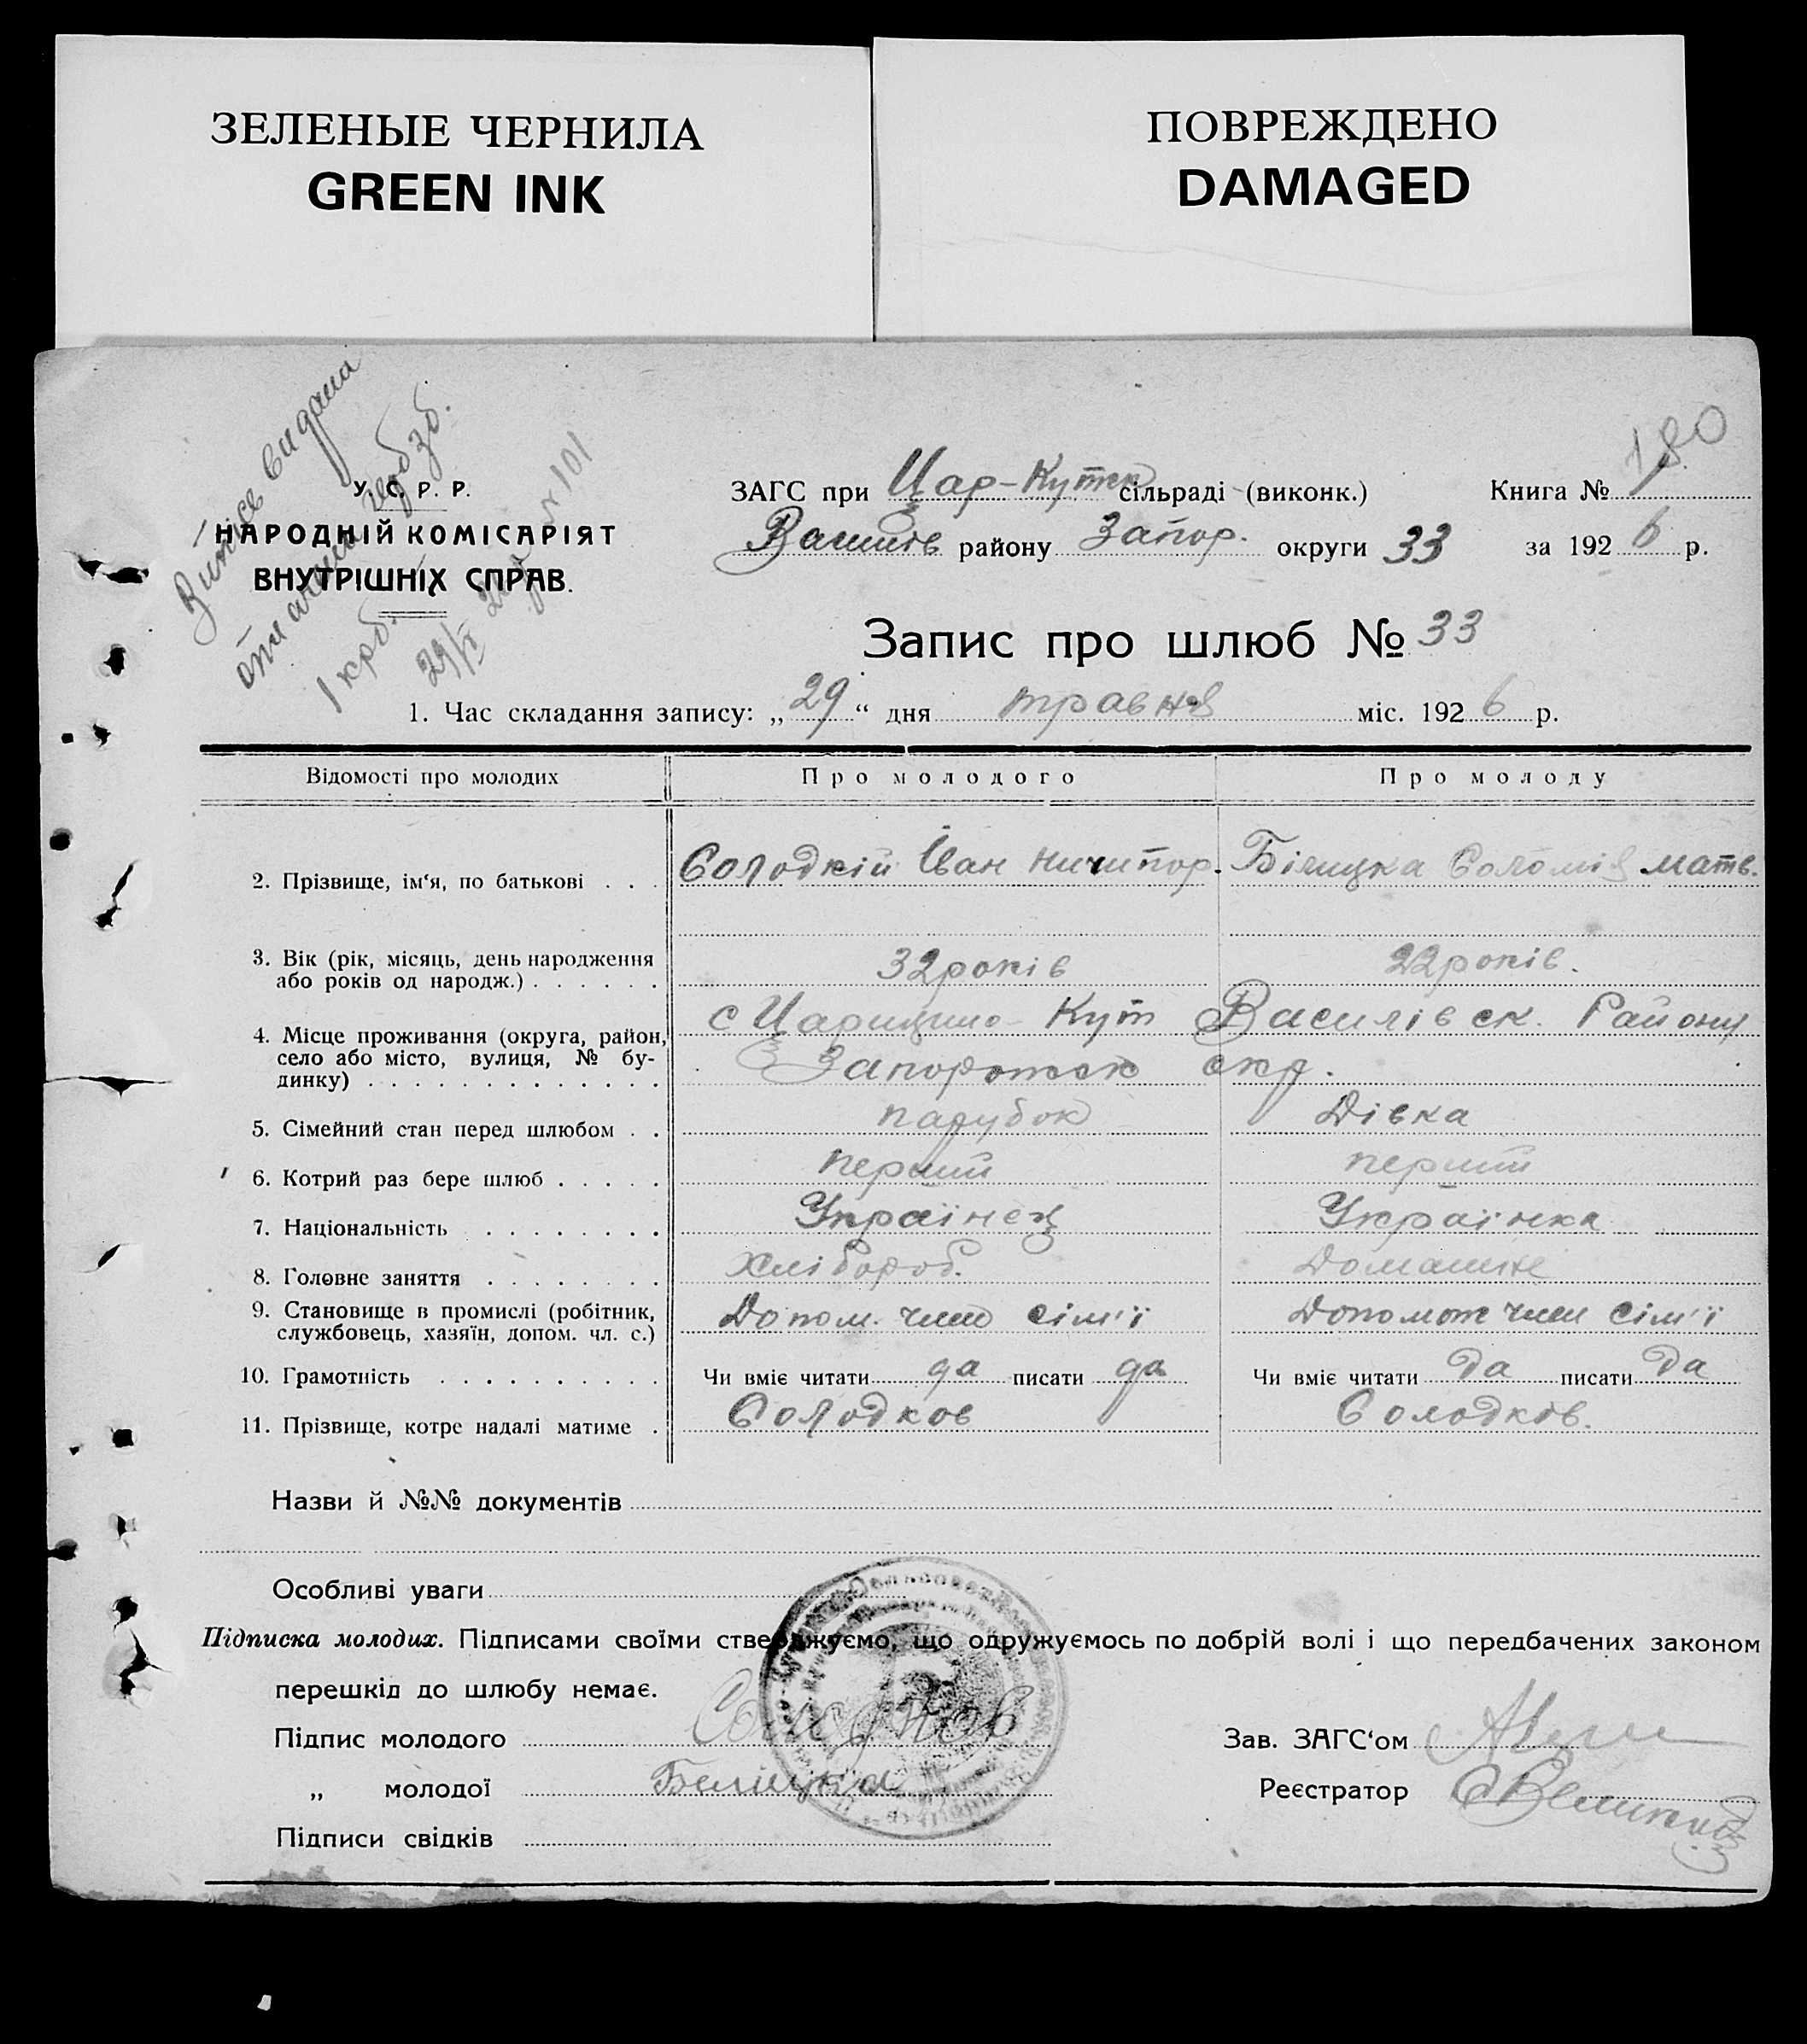 ЗЕЛЕНЫЕ ЧЕРНИЛА
GREEN INK
ПОВРЕЖДЕНО
DAMAGED
180
Витись видана
1 крб.
№ 101
У. С. Р. Р.
НАРОДНІЙ КОМІСАРІЯТ
ВНУТРІШНІХ СПРАВ.
ЗАГС при Цар-Кутск сільраді (виконк.) Книга № 1
району Запор. округи 33 за 1926 р.
Запис про шлюб № 33
1. Час складання запису: „29“ дня травня міс. 1926 р.
Відомості про молодих Про молодого Про молоду
2. Прізвище, ім‘я, по батькові . . . Солодкій Іван Ничипор. Білицка Соломія Матв.
3. Вік (рік, місяць, день народження 32 років 22 років.
або років од народж.) . . . . . .
с Царицино Кут Василівск. Району
4. Місце проживання (округа, район,
село або місто, вулиця, № бу- Запорожск окр.
динку) . . . . . . . . . . . . .
5. Сімейний стан перед шлюбом . . парубок Дівка
6. Котрий раз бере шлюб . . . . . перший перший
7. Національність . . . . . . . . Українец Українка
8. Головне заняття . . . . . . . . Хлібороб. Домашне
9. Становище в промислі (робітник, Допом. член сім'ї Допомож член сім'ї
службовець, хазяїн, допом. чл. с.)
10. Грамотність . . . . . . . . . . Чи вміє читати да писати да Чи вміє читати да писати да
11. Прізвище, котре надалі матиме . Солодков Солодков.
Назви й №№ документів
Особливі уваги
Підписка молодих. Підписами своїми стверджуємо, що одружуємось по добрій волі і що передбачених законом
перешкід до шлюбу немає.
Підпис молодого Солодков Зав. ЗАГС‘ом
„ молодої Белицка Реєстратор
Підписи свідків